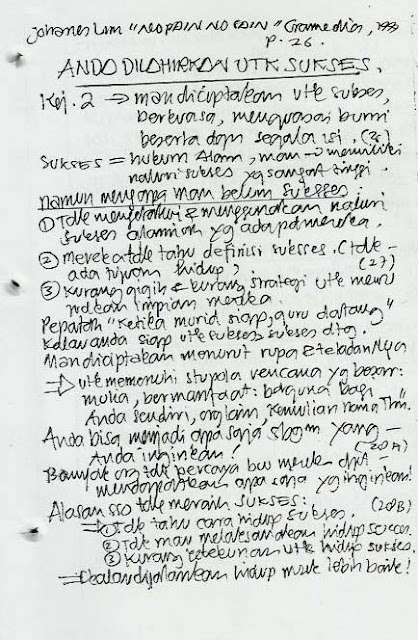 Johanes Lim "NO PAIN NO GAIN" Gramedia, 1999
p. 26.
ANDA DILAHIRKAN UTK SUKSES.
Kej. 2 → man diciptakan utk sukses,
berkuasa, menguasai bumi
beserta dgn segala isi. (26)
SUKSES = hukum Alam, man → memiliki
naluri sukses yg sangat tinggi.
namun mengapa man belum sukses:
① Tdk mengetahui & menggunakan naluri
sukses alamiah yg ada pd mereka.
② Mereka tdk tahu definisi sukses. (tdk
ada tujuan hidup; (27)
③ Kurang gigih & kurang strategi utk mewu
judkan impian mereka.
Pepatah "Ketika murid siap, guru datang"
Kalau anda siap utk sukses, sukses dtg.
Man diciptakan menurut rupa & teladanNya
⇒ utk memenuhi rencana yg besar:
mulia, bermanfaat: berguna bagi
Anda sendiri, org lain, kemulian nama Thn.
Anda bisa menjadi apa saja yang
Anda inginkan! (28A)
Banyak org tdk percaya bw mereka dpt
mendapatkan apa saja yg inginkan!
Alasan sso tdk meraih SUKSES: (28B)
⇒ ① Tdk tahu cara hidup sukses.
② Tdk mau melaksanakan hidup sukses.
③ Kurang ketekunan utk hidup sukses.
hidup lebih baik!